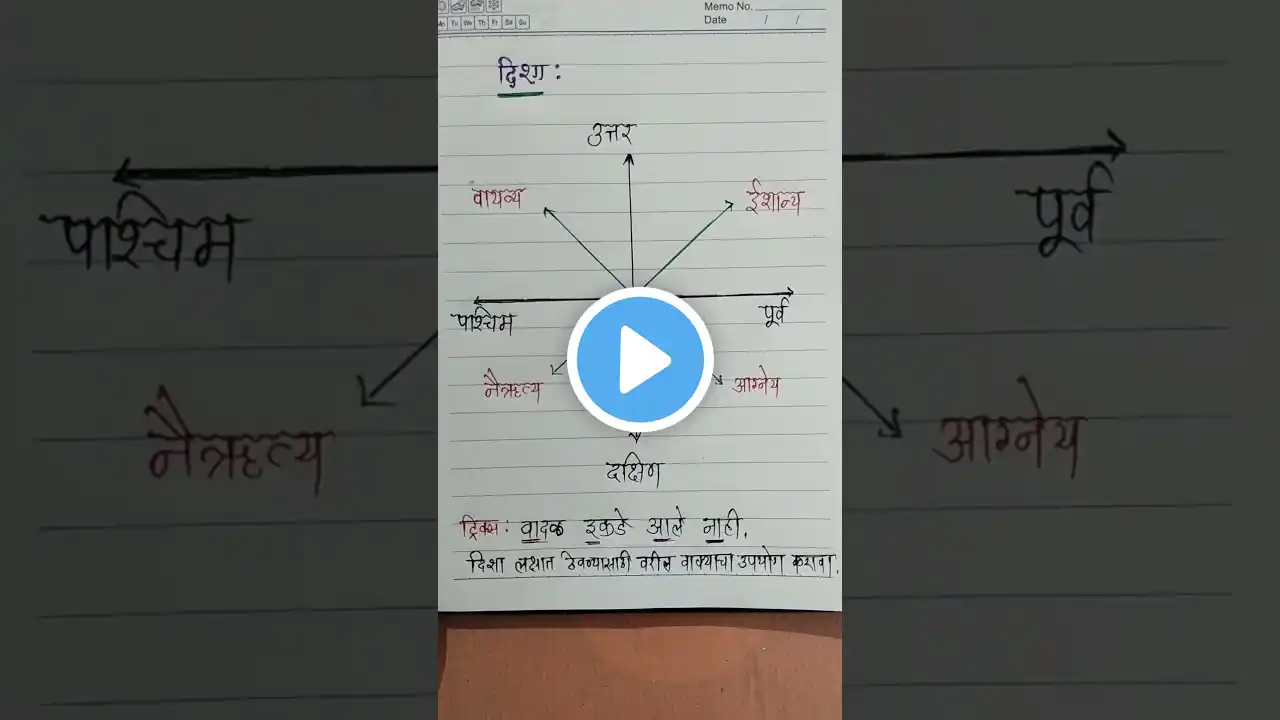 Memo No.
Mo Tu We Th Fr Sa Su
Date / /
दिशा :
उत्तर
वायव्य
ईशान्य
पश्चिम
पूर्व
नैऋत्य
आग्नेय
दक्षिण
ट्रिक्स : वादळ इकडे आले नाही.
दिशा लक्षात ठेवण्यासाठी वरील वाक्याचा उपयोग करावा.
पश्चिम
पूर्व
नैऋत्य
आग्नेय